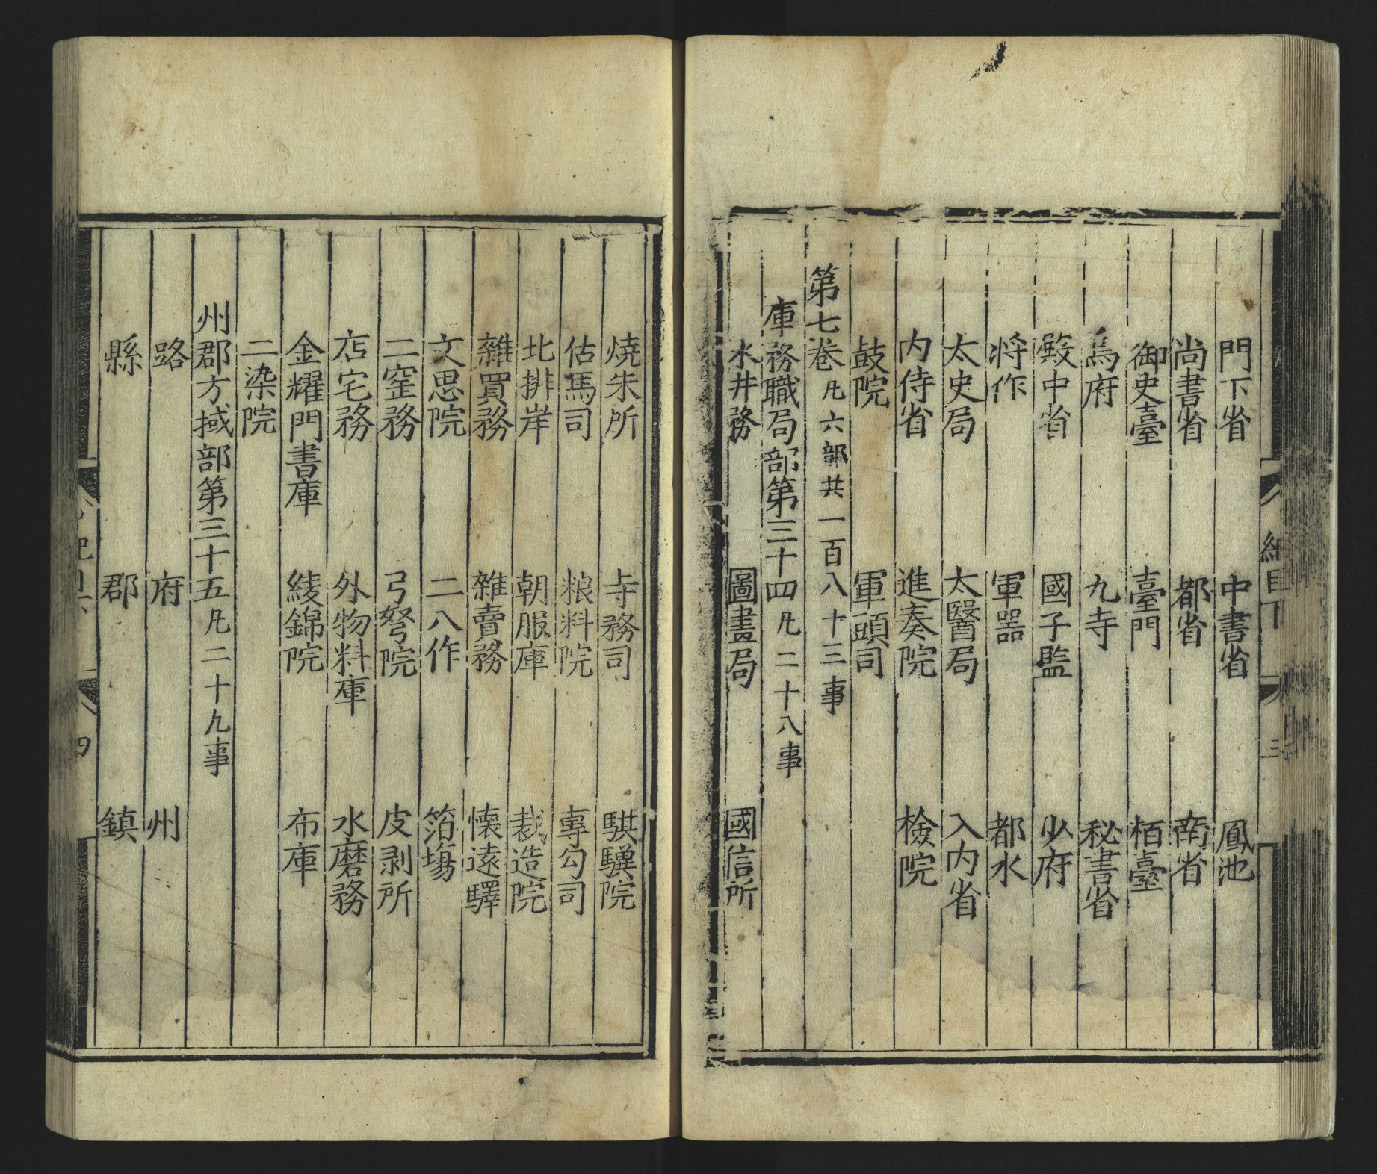 門下省 中書省 鳳池
尚書省 都省 南省
御史臺 臺門 栢臺
烏府 九寺 秘書省
殿中省 國子監 少府
將作 軍器 都水
太史局 太醫局 入內省
內侍省 進奏院 檢院
鼓院 軍頭司
第七卷凡六部共一百八十三事
庫務職局部第三十四凡二十八事
水井務 圖畫局 國信所
燒朱所 寺務司 騏驥院
估馬司 粮料院 專勾司
北排岸 朝服庫 裁造院
雜買務 雜賣務 懷遠驛
文思院 二八作 箔塲
二窑務 弓弩院 皮剥所
店宅務 外物料庫 水磨務
金耀門書庫 綾錦院 布庫
二染院
州郡方域部第三十五凡二十九事
路 府 州
縣 郡 鎮
四